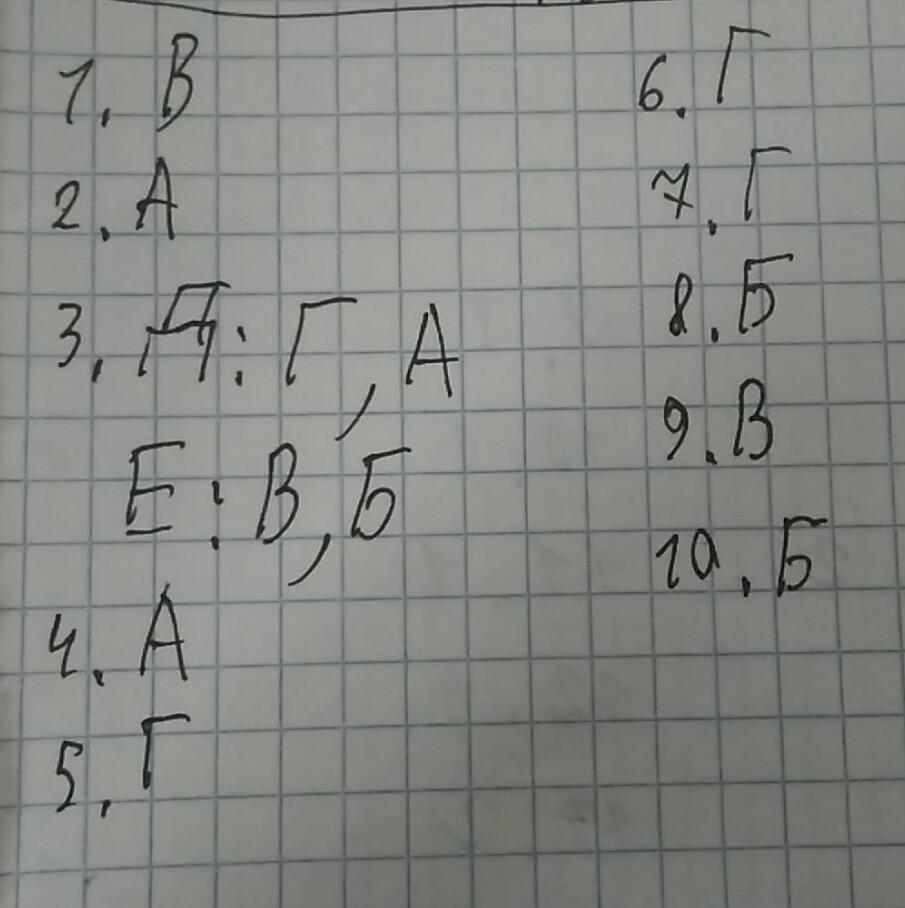 1. В
2. А
3. Д: Г, А
Е: В, Б
4. А
5. Г
6. Г
7. Г
8. Б
9. В
10. Б